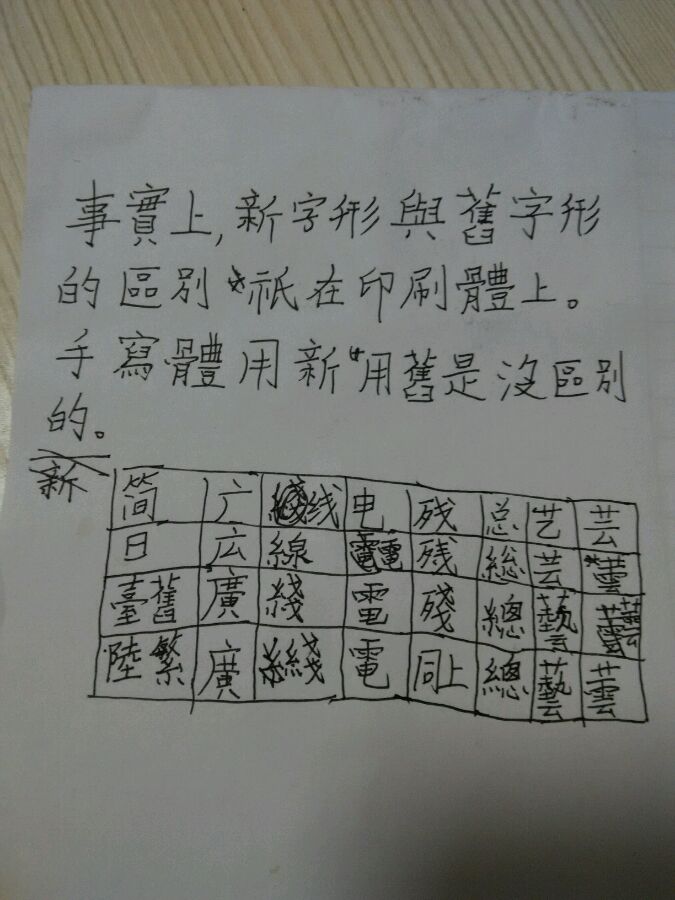 事實上,新字形與舊字形
的區別祇在印刷體上。
手寫體用新用舊是沒區別
的。
新
简 广 线 电 残 总 艺 芸
日 広 線 電 残 総 芸 蕓
臺舊 廣 綫 電 殘 總 藝 蕓
陸繁 廣 綫 電 同上 總 藝 蕓